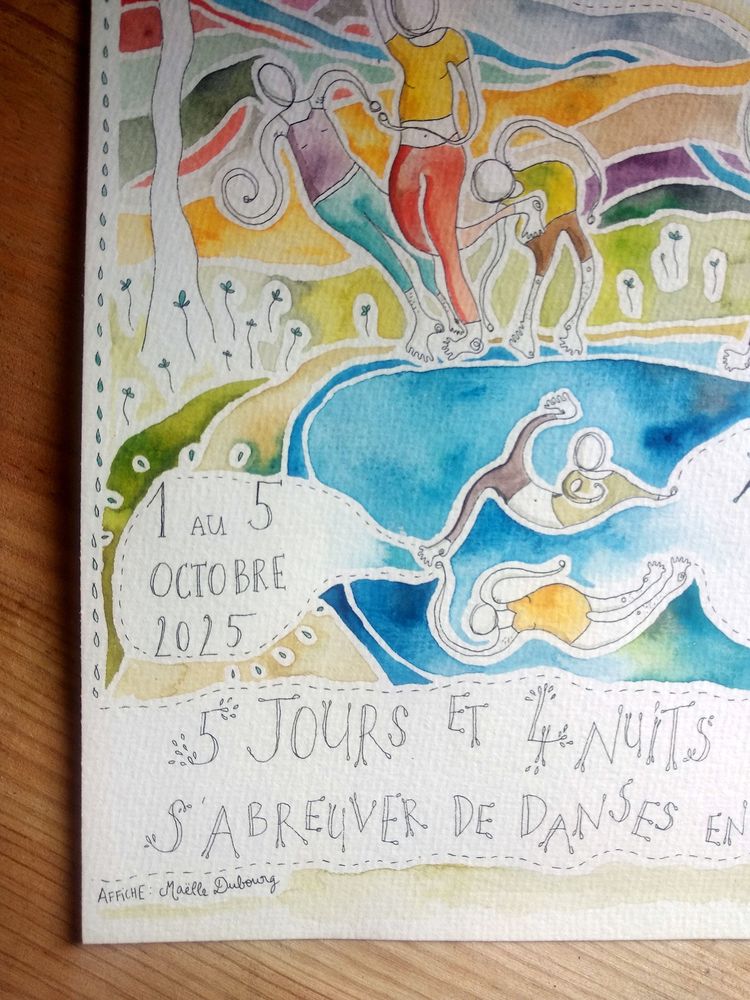 1 AU 5
OCTOBRE
2025
5 JOURS ET 4 NUITS
S'ABREUVER DE DANSES EN
AFFICHE: Maëlle Dubourg